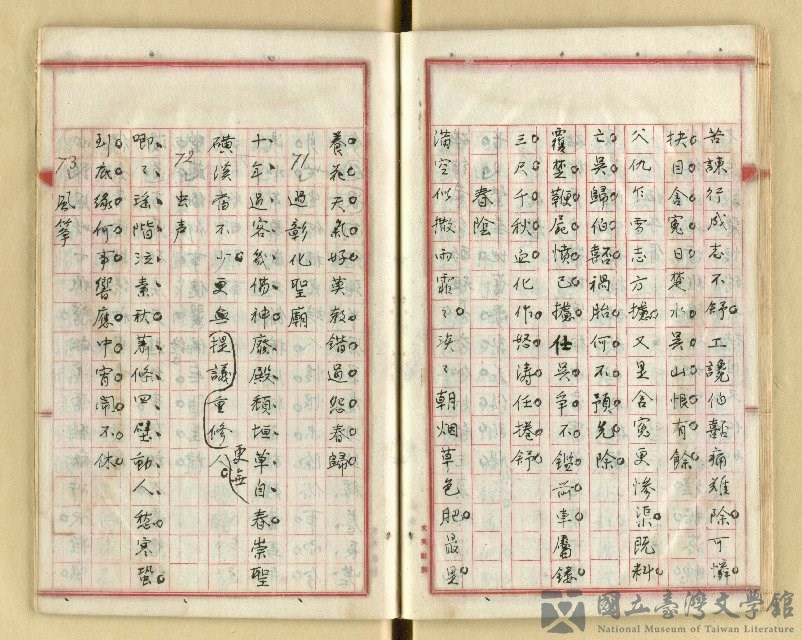 苦諫行成志不舒。工讒伯嚭痛難除。可憐
抉目含冤日。楚水吳山恨有餘。
父仇乍雪志方攄。又是含冤更慘渠。既料
亡吳歸伯嚭。禍胎何不預先除。
覆楚鞭屍憤已攄。仕吳爭不鑑前車。屬鏤
三尺千秋血。化作怒濤任捲舒。
春陰
滿空似撒雨霏々。漠々朝烟草色肥。最是
養花天氣好。莫教錯過怨春歸。
71 過彰化聖廟
十年過客幾傷神。廢殿頹垣草自春。崇聖
磺溪當不少。更無提議重修人。
更無
72 虫声
唧々瑤階泣素秋。蕭條四壁動人愁。寒蛩
到底緣何事。響應中宵鬧不休。
73 風箏
國立臺灣文學館
National Museum of Taiwan Literature